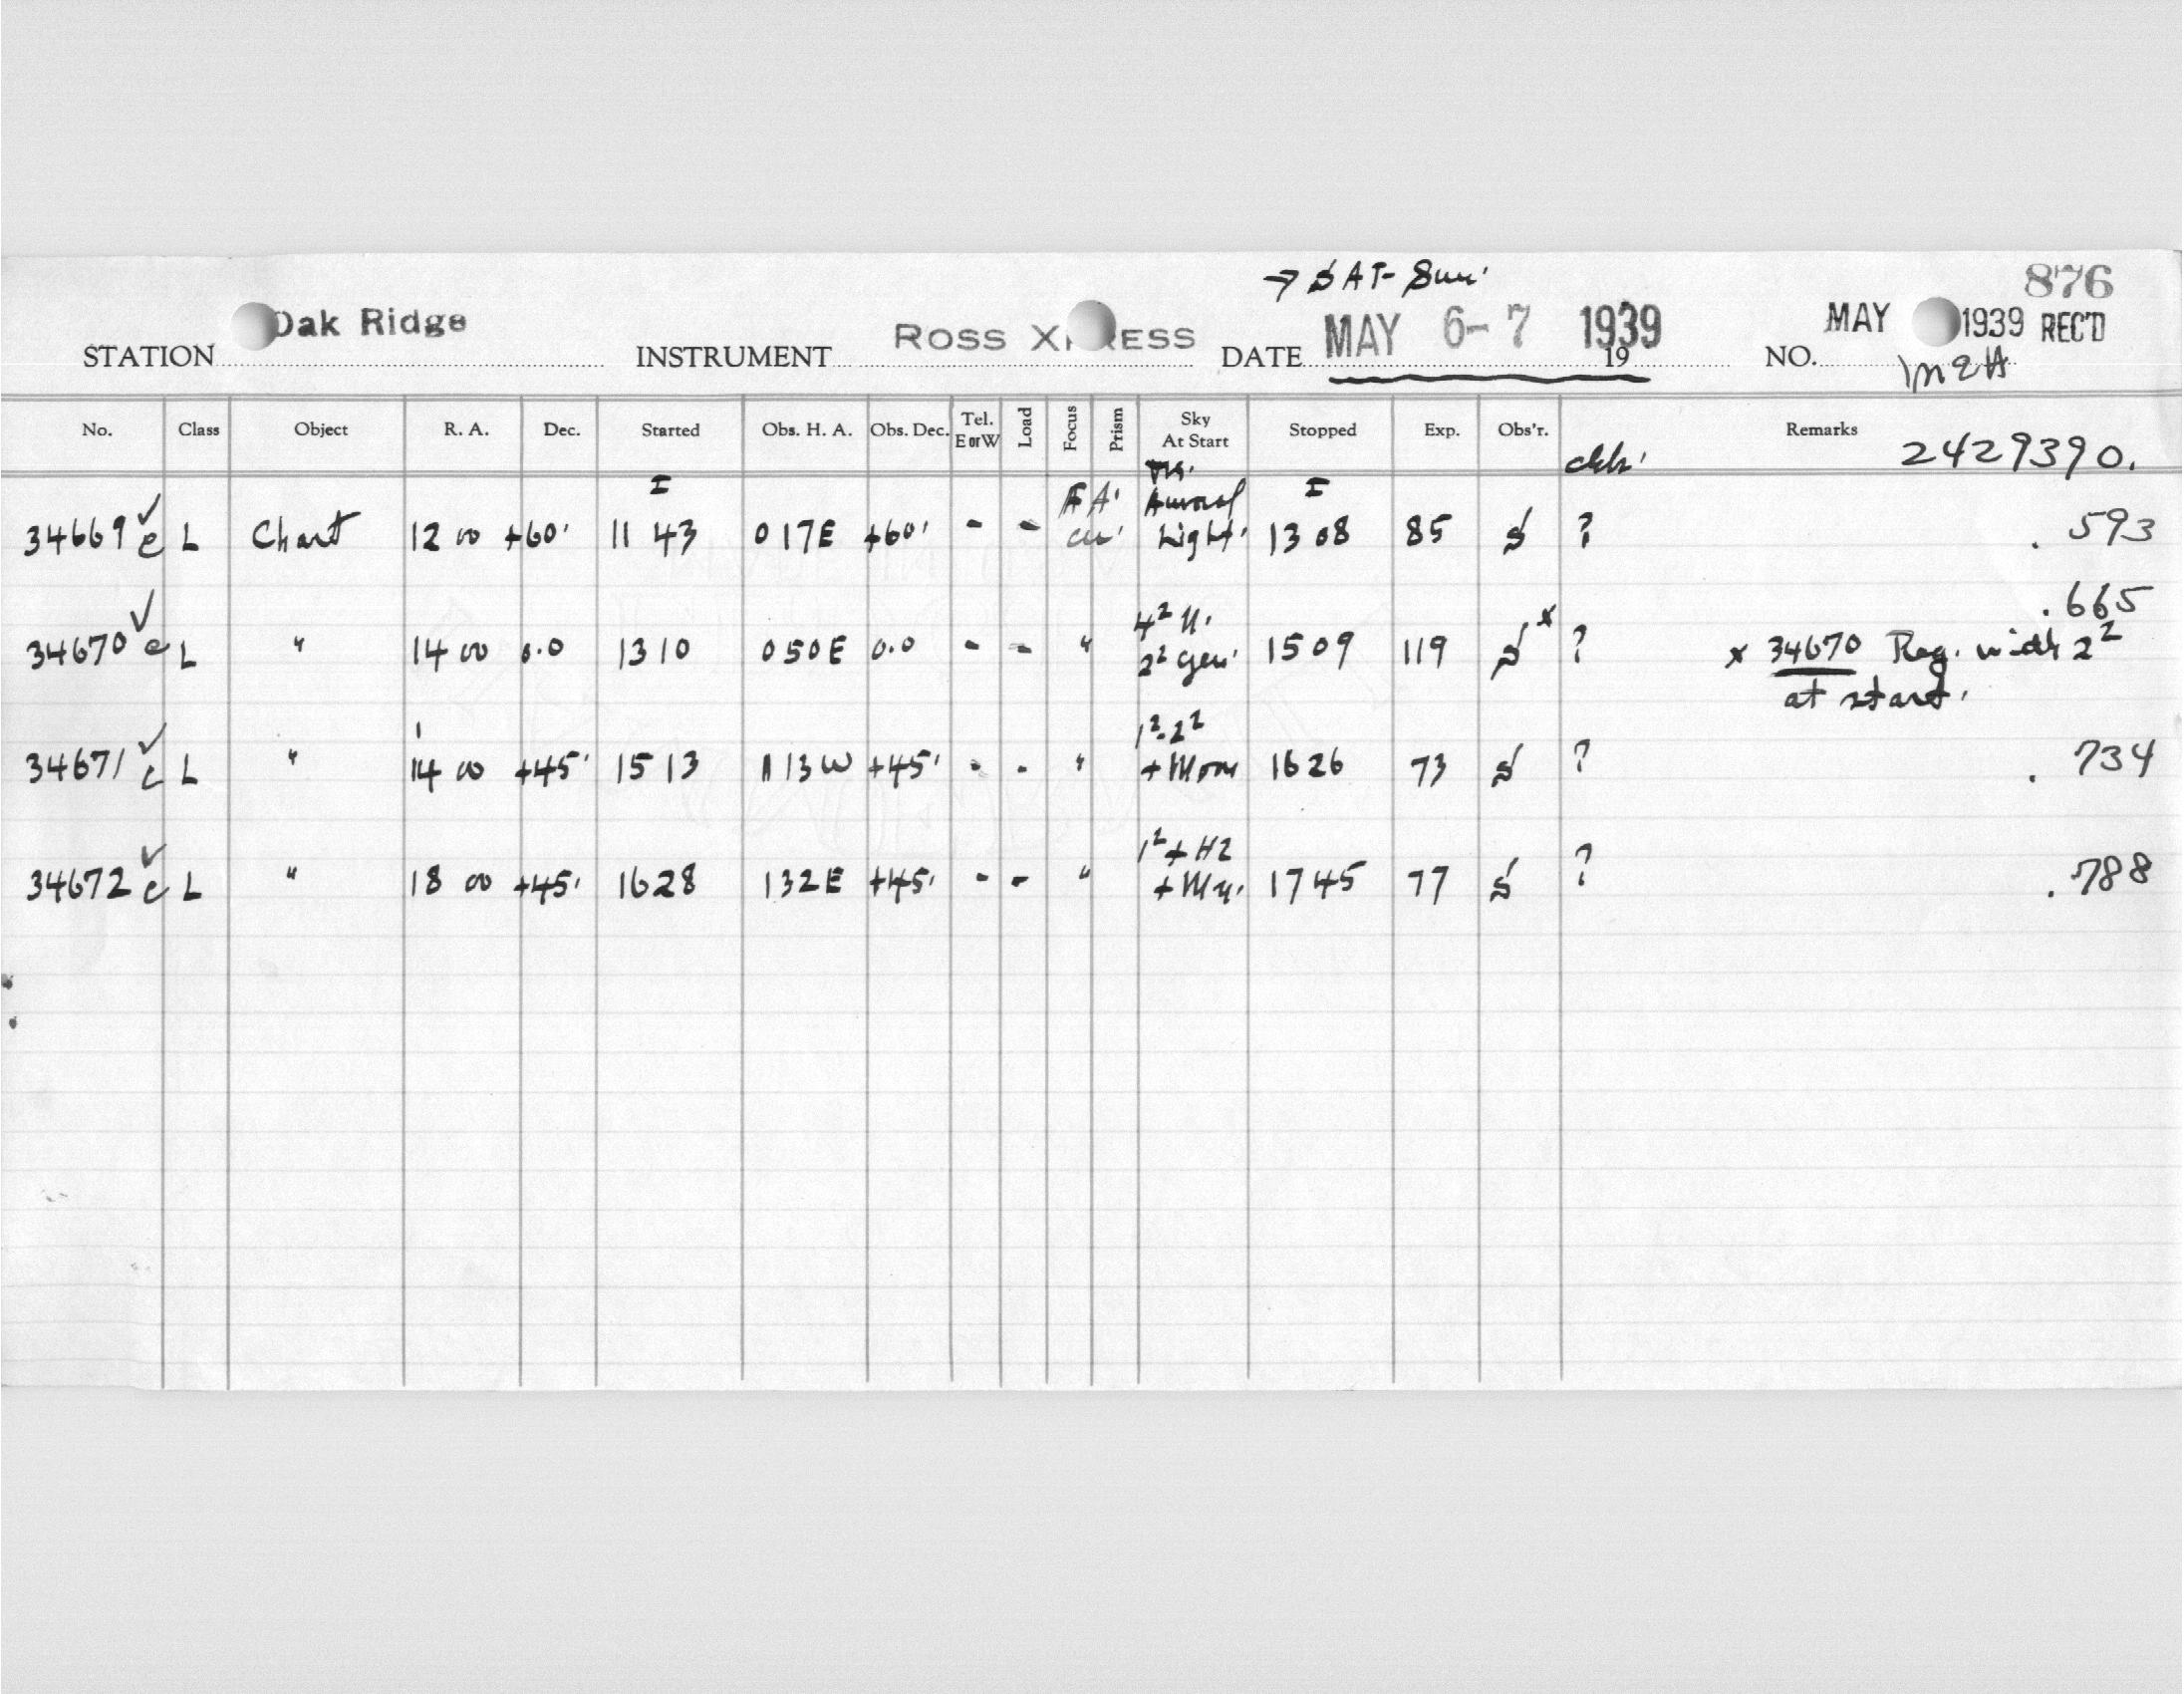 → SAT- Sun.
876
STATION Oak Ridge INSTRUMENT ROSS X ESS DATE MAY 6-7 1939 19 NO. MAY 1939 REC'D
MEH
No. Class Object R. A. Dec. Started Obs. H. A. Obs. Dec. Tel. E or W Load Focus Prism Sky At Start Stopped Exp. Obs'r. Remarks
2429390.
I I
34669 ✓ e L Chart 12 00 +60. 11 43 017E +60. - - FA. Auroral Light. 13 08 85 S ? . 593
34670 ✓ e L " 14 00 0.0 13 10 050E 0.0 - - " 4² 2² gen. 15 09 119 S x ? .665
x 34670 Reg. with 2²
at start.
34671 ✓ e L " 14 00 +45. 15 13 113W +45. - - " 1²-2² + Moon 16 26 73 S ? . 734
34672 ✓ e L " 18 00 +45. 16 28 132E +45. - - " 1² + HZ 17 45 77 S ? .788